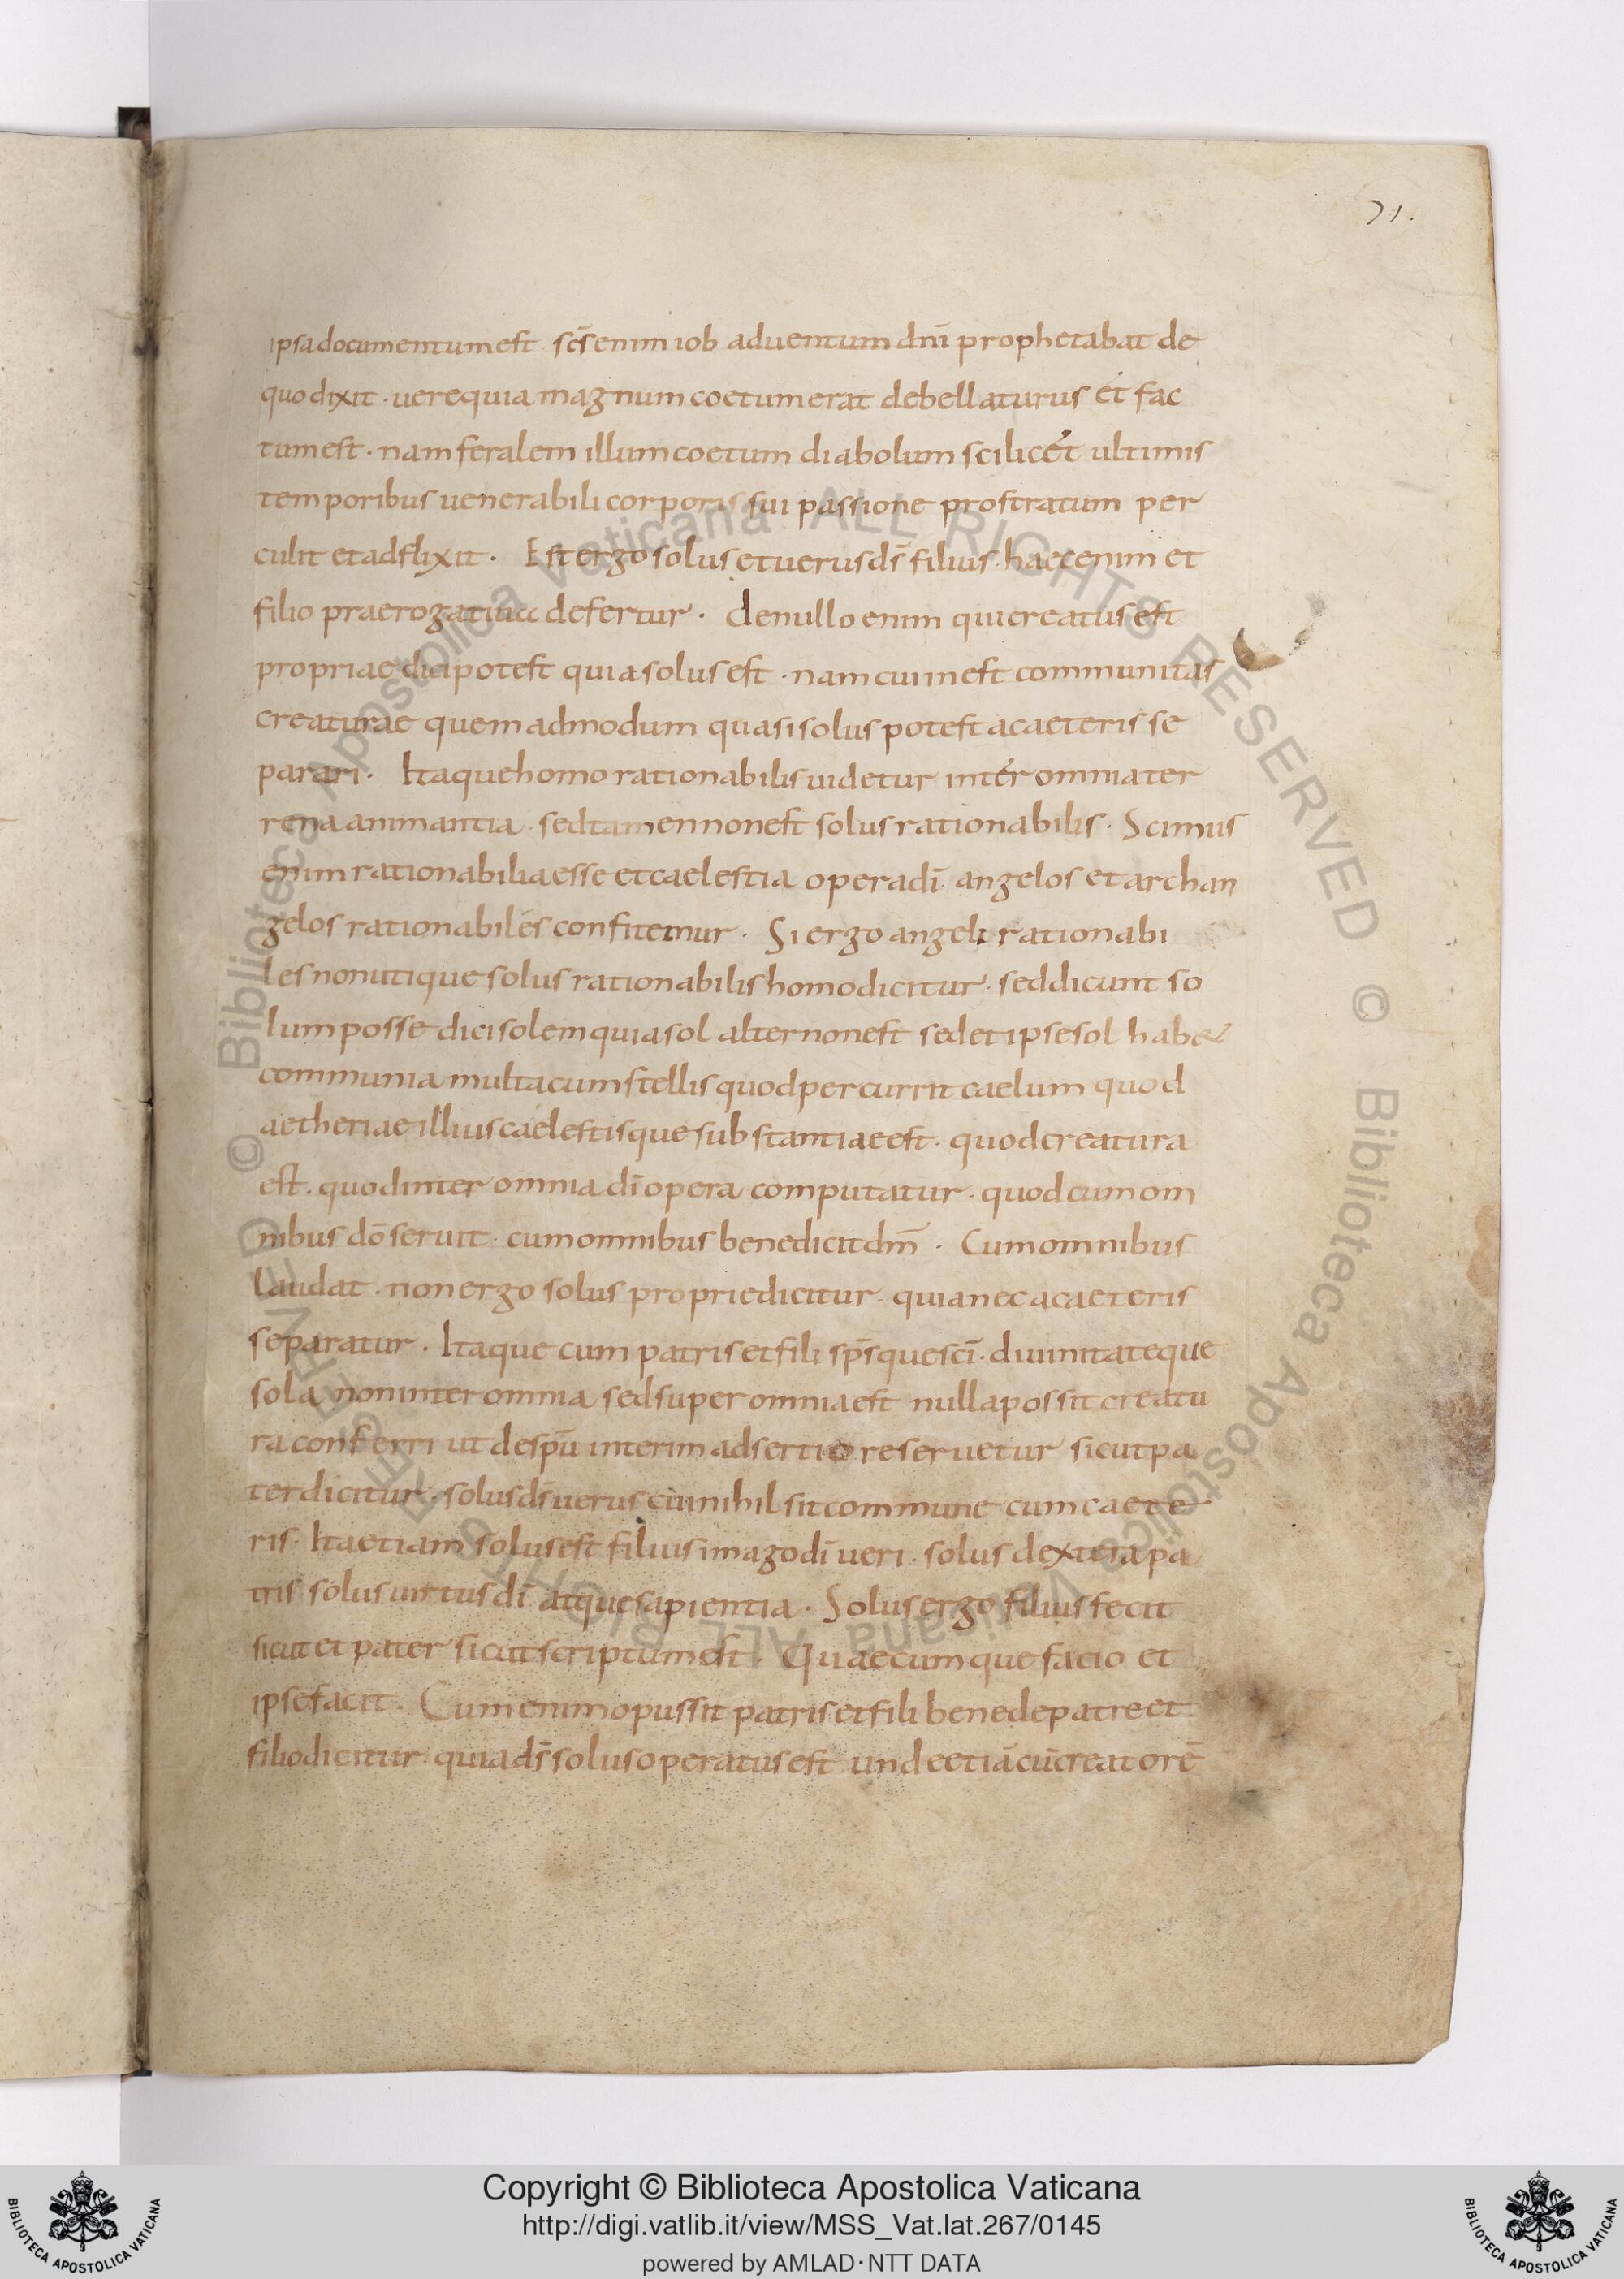 71.
ipsa documentum est. scs̄ enim iob aduentum dnī prophetabat de
quo dixit. uere quia magnum coetum erat debellaturus et fac
tum est. nam feralem illum coetum diabolum scilicet ultimis
temporibus uenerabili corporis sui passione prostratum per
culit et adflixit. Est ergo solus et uerus ds̄ filius. haec enim et
filio praerogatiua defertur. de nullo enim qui creatus est
propriae dici potest quia solus est. nam cui inest communitas
creaturae quemadmodum quasi solus potest a caeteris se
parari. Itaque homo rationabilis uidetur inter omnia ter
rena animantia. sed tamen non est solus rationabilis. Scimus
enim rationabilia esse et caelestia opera dī. angelos et archan
gelos rationabiles confitemur. Si ergo angeli rationabi
les non utique solus rationabilis homo dicitur. sed dicunt so
lum posse dici solem quia sol alter non est sed et ipse sol habet
communia multa cum stellis quod percurrit caelum quod
aetheriae illius caelestisque substantiae est. quod creatura
est. quod inter omnia dī opera computatur. quod cum om
nibus dō seruit. cum omnibus benedicit dm̄. Cum omnibus
laudat. non ergo solus proprie dicitur. quia nec a caeteris
separatur. Itaque cum patris et fili sps̄que scī. diuinitateque
sola non inter omnia sed super omnia est nulla possit creatu
ra conferri ut de spū interim adsertio reseruetur sicut pa
ter dicitur. solus ds̄ uerus cui nihil sit commune cum caete
ris. Ita etiam solus est filius imago dī ueri. solus dextera pa
tris solus uirtus dī atque sapientia. Solus ergo filius fecit
sicut et pater sicut scriptum est. Quaecumque facio et
ipse facit. Cum enim opus sit patris et fili bene de patre et
filio dicitur. quia ds̄ solus operatus est unde etiā cū creatorē
© Biblioteca Apostolica Vaticana ALL RIGHTS RESERVED © Biblioteca Apostolica Vaticana ALL RIGHTS RESERVED
Copyright © Biblioteca Apostolica Vaticana
http://digi.vatlib.it/view/MSS_Vat.lat.267/0145
powered by AMLAD·NTT DATA
BIBLIOTECA APOSTOLICA VATICANA
BIBLIOTECA APOSTOLICA VATICANA